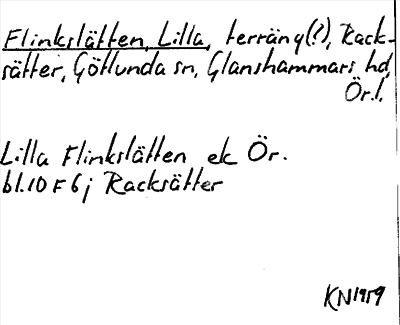 Flinkslätten, Lilla, terräng(?), Rack-
sätter, Götlunda sn, Glanshammars hd,
Ör.l.
Lilla Flinkslätten ek Ör.
bl.10 F 6 j Racksätter
KN 1959